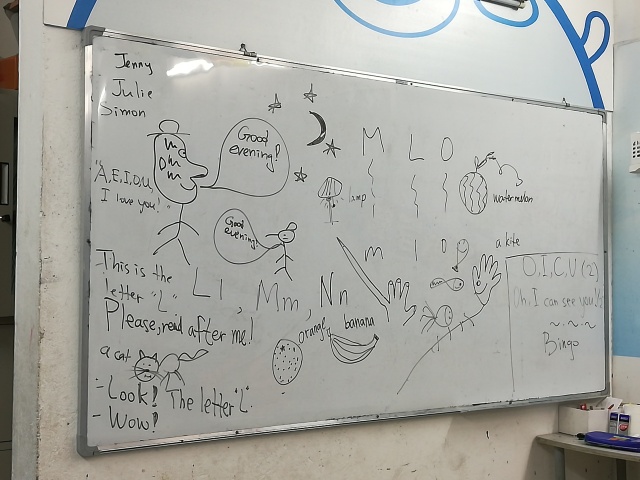 Jenny
Julie
Simon
Good
evening!
"A, E, I, O, U,
I love you!"
M L O
lamp
watermelon
Good
evening!
m l o
a kite
This is the
letter "L"
Ll, Mm, Nn
Please, read after me!
orange
banana
a cat
- Look! The letter "L".
- Wow!
O, I, C, U (2)
Oh, I can see you!
~ ~ ~
Bingo